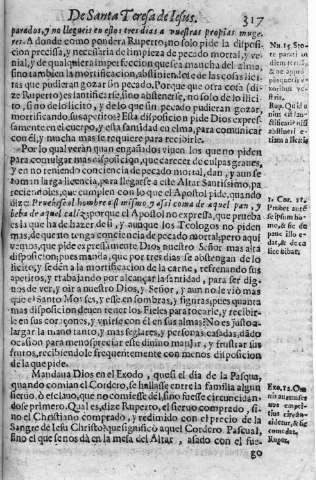 De Santa Teresa de Iesus. 317
parados, y no lleguеis en estos tres dias a vuestras propias muge-
res. A donde como pondera Ruperto, no solo pide la disposi-
cion precisa, y necesaria de limpieza de pecado mortal, y ve-
nial, y de qualquiera imperfeccion que sea mancha del alma,
sino tambien la mortificacion, abstiniendole de las cosas lici-
tas que pudieran gozar sin pecado. Porque que otra cosa (di-
ze Ruperto) es santificarse, sino abstenerse, no solo de lo illici-
to, si no de lo licito, y de lo que sin pecado pudieran gozar,
mortificando sus apetitos? Esta disposicion pide Dios expres-
samente en el cuerpo, y esta santidad en el ma, para comunicar
con èl, y mucha mas se requiere para recibirle.
Por lo qual veràn quan engañados viuen los que no piden
para comulgar mas disposicion, que carecer de culpas graues,
y en no teniendo conciencia de pecado mortal, dan, y aun se
toman larga licencia, para llegarse à este Altar Santissimo, pa
reciendoles, que cumplen con lo que el Apostol pide, quando
dize: Prueuese el hombre asi mismo, y asi coma de aquel pan, y
beba de aquel caliz, porque el Apostol no expressa, que prueba
es la que ha de hazer de si, y aunque los Teologos no piden
mas, de que no tenga conciencia de pecado mortal, pero aqui
vemos, que pide expressamente Dios nuestro Señor mas alta
disposicion, pues manda, que por tres dias se abstengan de lo
licito, y se den a la mortificacion de la carne, refrenando sus
apetitos, y trabajando por alcançar la santidad, para ser dig-
nos de ver, y oir a nuestro Dios, y Señor, y aun no le viò mas
que el Santo Moyses, y esse en sombras, y figuras, pues quanta
mas disposicion deuen tener los Fieles para tocarle, y recibir-
le en sus coraçones, y vnirse con èl en sus almas? No es justo a-
largar la mano tanto, y mas seglares, y personas casadas, dãdo
ocasion para menospreciar este diuino manjar, y frustrar sus
frutos, recibiendole frequentemente con menos disposicion
de la que pide.
Mandaua Dios en el Exodo, que si el dia de la Pasqua,
quando comian el Cordero, se hallasse entre la familia algun
sieruo, ò esclauo, que no comiesse dèl, sino fuesse circuncidan-
dose primero. Qual es, dize Ruperto, el sieruo comprado, si-
no el Christiano comprado, y redimido con el precio de la
Sangre de Iesu Christo? que significò aquel Cordero Pascual,
sino el que se nos dà en la mesa del Altar, asado con el fue-
go
Rup. Quid e
1. Cor. 11.
Probet autẽ
se ipsum ho-
mo, & sic de
pane illo e-
dat, & de ca
lice bibat.
Exo. 12. Om
nis autem ser
uus emp-
titius circũ-
cidetur, & sic
comedet,
Ruper.